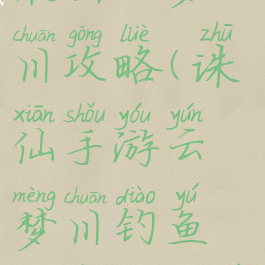 chuān gōng lüè zhū
川攻略(诛
xiān shǒu yóu yún
仙手游云
mèng chuān diào yú
梦川钓鱼